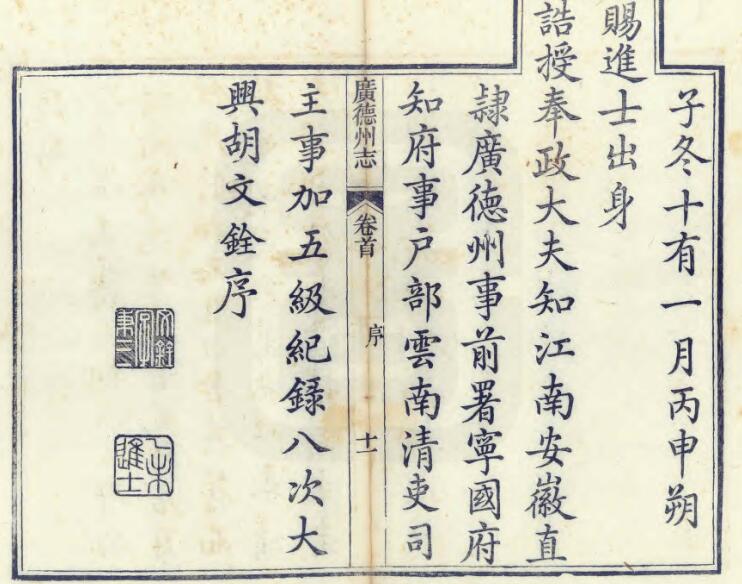 子冬十有一月丙申朔
賜進士出身
誥授奉政大夫知江南安徽直
隸廣德州事前署寧國府
知府事戶部雲南清吏司
廣德州志
卷首
序
十一
主事加五級紀錄八次大
興胡文銓序
進士